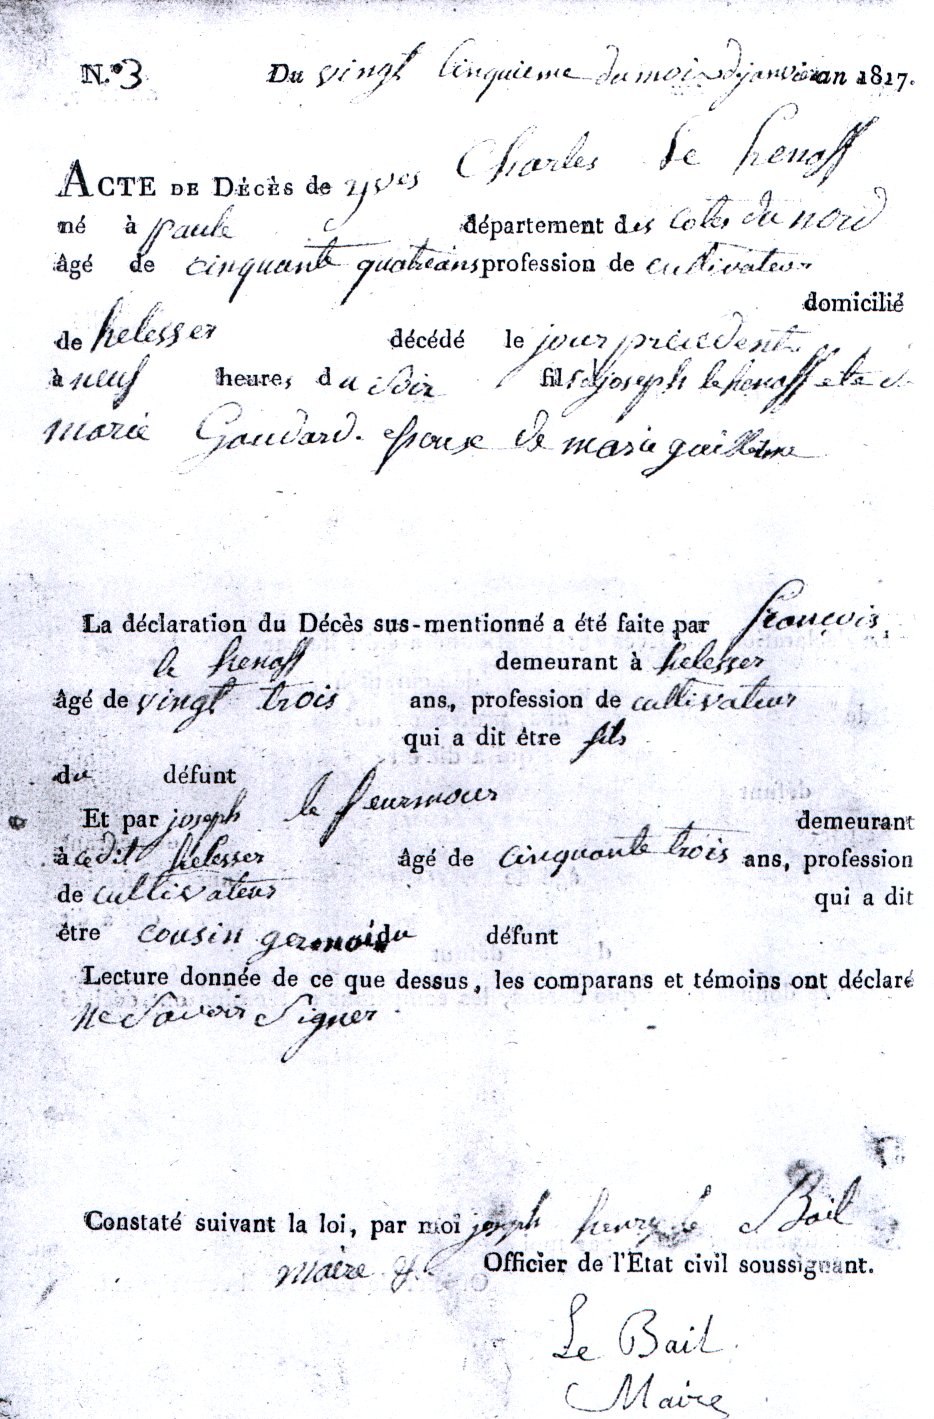 N.° 3 Du vingt cinquieme du mois de janvier an 1817.
ACTE DE DÉCÈS de yves Charles Le henaff
né à paule département des cotes du nord
âgé de cinquante quatre ans profession de cultivateur
domicilié
de helesser décédé le jour precedent
à neuf heures du soir fils de joseph le henaff et de
marie Goudard. epoux de marie guillerme
La déclaration du Décès sus-mentionné a été faite par françois
le henaff demeurant à helesser
âgé de vingt trois ans, profession de cultivateur
qui a dit être fils
du défunt
Et par joseph le demeurant
à ce dit helesser âgé de cinquante trois ans, profession
de cultivateur qui a dit
être cousin germain du défunt
Lecture donnée de ce que dessus, les comparans et témoins ont déclaré
ne Savoir Signer
Constaté suivant la loi, par moi joseph henry le Bail
maire & Officier de l'État civil soussignant.
Le Bail
Maire